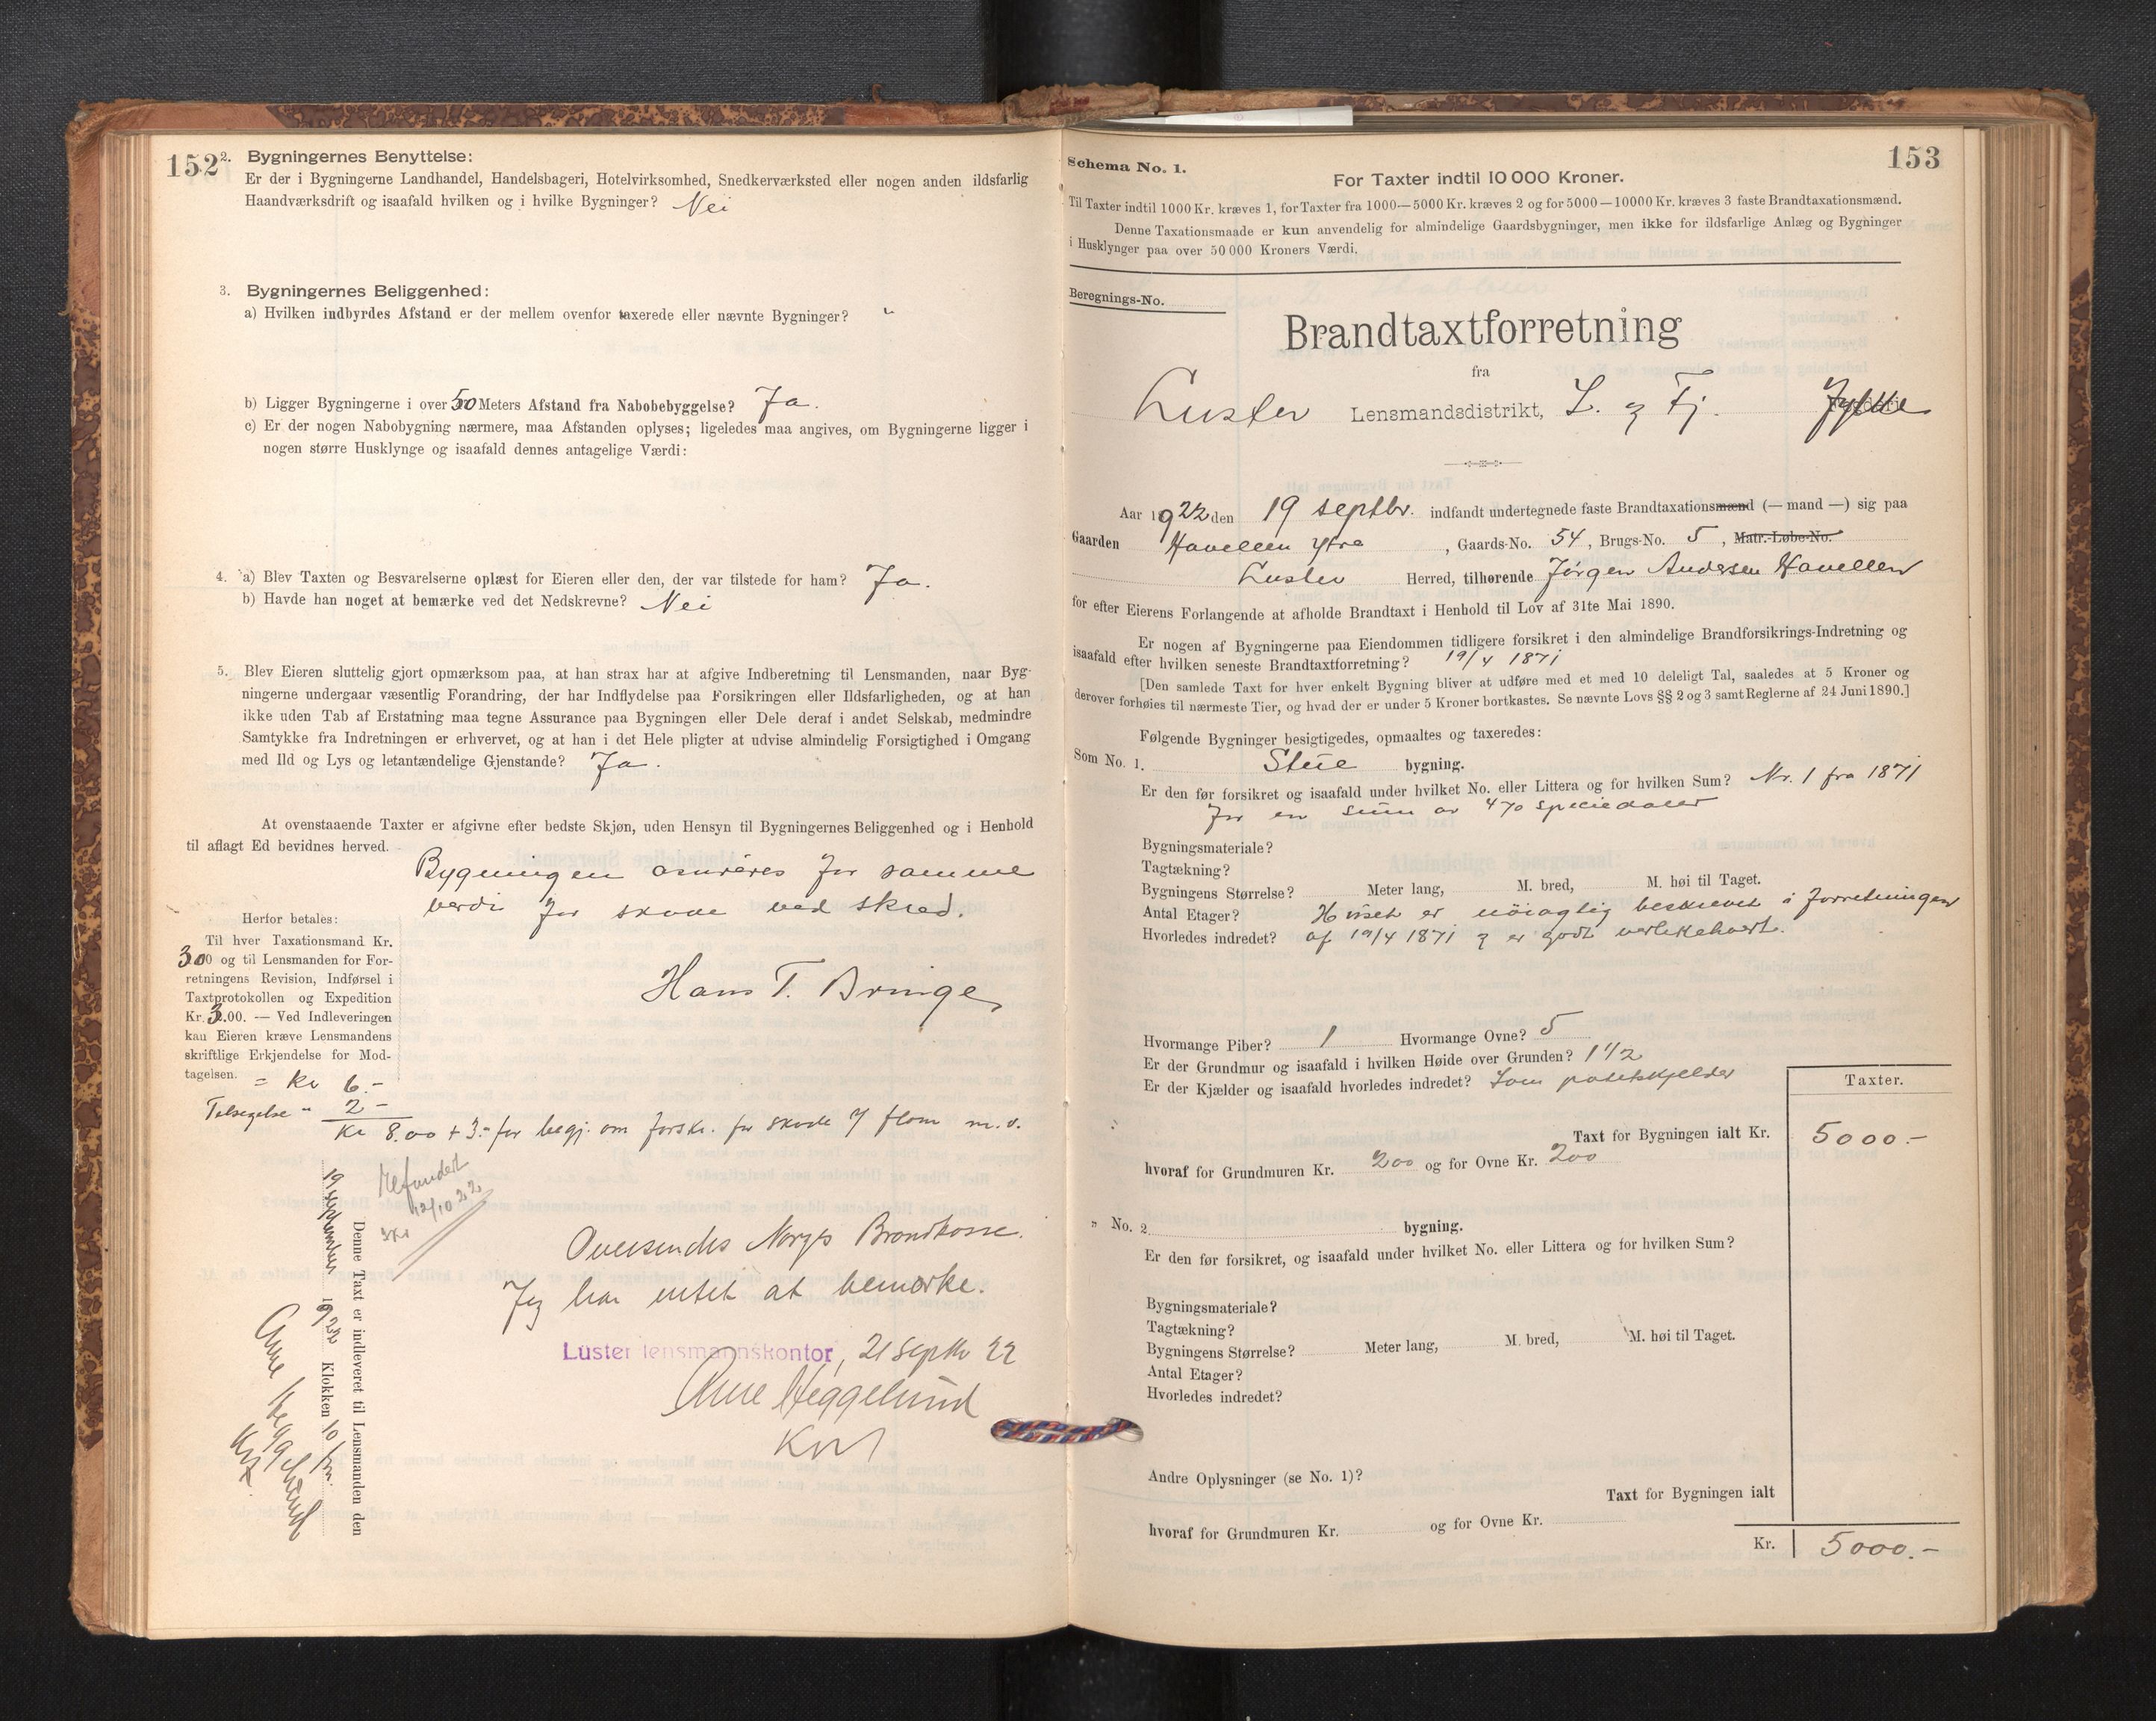 152
2. Bygningernes Benyttelse:
Er der i Bygningerne Landhandel, Handelsbageri, Hotelvirksomhed, Snedkerværksted eller nogen anden ildsfarlig
Haandværksdrift og isaafald hvilken og i hvilke Bygninger? Nei
3. Bygningernes Beliggenhed:
a) Hvilken indbyrdes Afstand er der mellem ovenfor taxerede eller nævnte Bygninger? "
b) Ligger Bygningerne i over 50 Meters Afstand fra Nabobebyggelse? Ja.
c) Er der nogen Nabobygning nærmere, maa Afstanden oplyses; ligeledes maa angives, om Bygningerne ligger i
nogen større Husklynge og isaafald dennes antagelige Værdi:
4. a) Blev Taxten og Besvarelserne oplæst for Eieren eller den, der var tilstede for ham? Ja.
b) Havde han noget at bemærke ved det Nedskrevne? Nei
5. Blev Eieren sluttelig gjort opmærksom paa, at han strax har at afgive Indberetning til Lensmanden, naar Byg-
ningerne undergaar væsentlig Forandring, der har Indflydelse paa Forsikringen eller Ildsfarligheden, og at han
ikke uden Tab af Erstatning maa tegne Assurance paa Bygningen eller Dele deraf i andet Selskab, medmindre
Samtykke fra Indretningen er erhvervet, og at han i det Hele pligter at udvise almindelig Forsigtighed i Omgang
med Ild og Lys og letantændelige Gjenstande? Ja.
At ovenstaaende Taxter er afgivne efter bedste Skjøn, uden Hensyn til Bygningernes Beliggenhed og i Henhold
til aflagt Ed bevidnes herved.
Bygningen asureres for samme
verdi for skade ved skred.
Hans T. Bringe
Herfor betales:
Til hver Taxationsmand Kr.
3.00 og til Lensmanden for For-
retningens Revision, Indførsel i
Taxtprotokollen og Expedition
Kr. 3.00. — Ved Indleveringen
kan Eieren kræve Lensmandens
skriftlige Erkjendelse for Mod-
tagelsen.
= kr 6.-
Tilsigelse " 2 -
Kr 8.00 + 3.- for begj. om forsk. for skade af flom m.v.
Refundert
12/10 22
3 Kr
Denne Taxt er indleveret til Lensmanden den
19 september 1922 Klokken 10 fm.
Arne Heggelund
Kst.
Oversendes Norges Brandkasse.
Jeg har intet at bemerke.
Luster lensmannskontor, 21 septbr 22
Arne Heggelund
Kst
153
Schema No. 1.
For Taxter indtil 10 000 Kroner.
Til Taxter indtil 1000 Kr. kræves 1, for Taxter fra 1000—5000 Kr. kræves 2 og for 5000—10000 Kr. kræves 3 faste Brandtaxationsmænd.
Denne Taxationsmaade er kun anvendelig for almindelige Gaardsbygninger, men ikke for ildsfarlige Anlæg og Bygninger
i Husklynger paa over 50 000 Kroners Værdi.
Beregnings-No.
Brandtaxtforretning
fra
Luster Lensmandsdistrikt, S. og Fj. Fylke
Aar 1922 den 19 septbr. indfandt undertegnede faste Brandtaxationsmænd (— mand —) sig paa
Gaarden Havellen ytre, Gaards-No. 54, Brugs-No. 5, Matr.-Løbe-No.
Luster Herred, tilhørende Jørgen Andersen Havellen
for efter Eierens Forlangende at afholde Brandtaxt i Henhold til Lov af 31te Mai 1890.
Er nogen af Bygningerne paa Eiendommen tidligere forsikret i den almindelige Brandforsikrings-Indretning og
isaafald efter hvilken seneste Brandtaxtforretning? 19/4 1871
[Den samlede Taxt for hver enkelt Bygning bliver at udføre med et med 10 deleligt Tal, saaledes at 5 Kroner og
derover forhøies til nærmeste Tier, og hvad der er under 5 Kroner bortkastes. Se nævnte Lovs §§ 2 og 3 samt Reglerne af 24 Juni 1890.]
Følgende Bygninger besigtigedes, opmaaltes og taxeredes:
Som No. 1. Stue bygning.
Er den før forsikret og isaafald under hvilket No. eller Littera og for hvilken Sum? Nr. 1 fra 1871
for en sum av 470 speciedaler
Bygningsmateriale?
Tagtækning?
Bygningens Størrelse? Meter lang, M. bred, M. høi til Taget.
Antal Etager? Huset er nöiagtig beskrevet i forretningen
Hvorledes indredet? af 19/4 1871 og er godt vedlikeholdt.
Hvormange Piber? 1 Hvormange Ovne? 5
Er der Grundmur og isaafald i hvilken Høide over Grunden? 1 1/2
Er der Kjælder og isaafald hvorledes indredet? Som potetkjelder
Taxter.
Taxt for Bygningen ialt Kr. 5000.-
hvoraf for Grundmuren Kr. 200 og for Ovne Kr. 200
" No. 2. bygning.
Er den før forsikret, og isaafald under hvilket No. eller Littera og for hvilken Sum?
Bygningsmateriale?
Tagtækning?
Bygningens Størrelse? Meter lang, M. bred, M. høi til Taget.
Antal Etager?
Hvorledes indredet?
Andre Oplysninger (se No. 1)?
Taxt for Bygningen ialt
hvoraf for Grundmuren Kr. og for Ovne Kr.
Kr. 5000.-